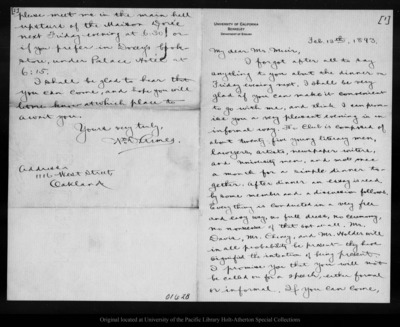 UNIVERSITY OF CALIFORNIA
BERKELEY
Feb. 10th, 1893.
My dear Mr. Muir,
I forgot after all to say
anything to you about the dinner on
Friday evening next. I shall be very
glad if you can make it convenient
to go with me, and think I can prom-
ise you a very pleasant evening in an
informal way. The Club is composed of
about twenty five young literary men,
lawyers, artists, newspaper writers,
and university men, and meets once
a month for a simple dinner to-
gether. After dinner an essay is read
by some member and a discussion follows.
Everything is conducted in a very free
and easy way, no full dress, no ceremony,
no nonsense of that sort at all. Mr.
Davis, Mr. Cheney, and Mr. Holden will
in all probability be present, they have
signified the intention of being present.
I promise you that you will not
be called on for a speech, either formal
or informal. If you can come,
please meet me in the main hall
upstairs of the Maison Dorée
next Friday evening at 6:30, or
if you prefer in Doxey's book-
store, under Palace Hotel at
6:15.
I shall be glad to hear that
you can come, and hope you will
let me know at which place to
await you.
Yours very truly,
Address
1116 West Street
Oakland
01628
Original located at University of the Pacific Library Holt-Atherton Special Collections